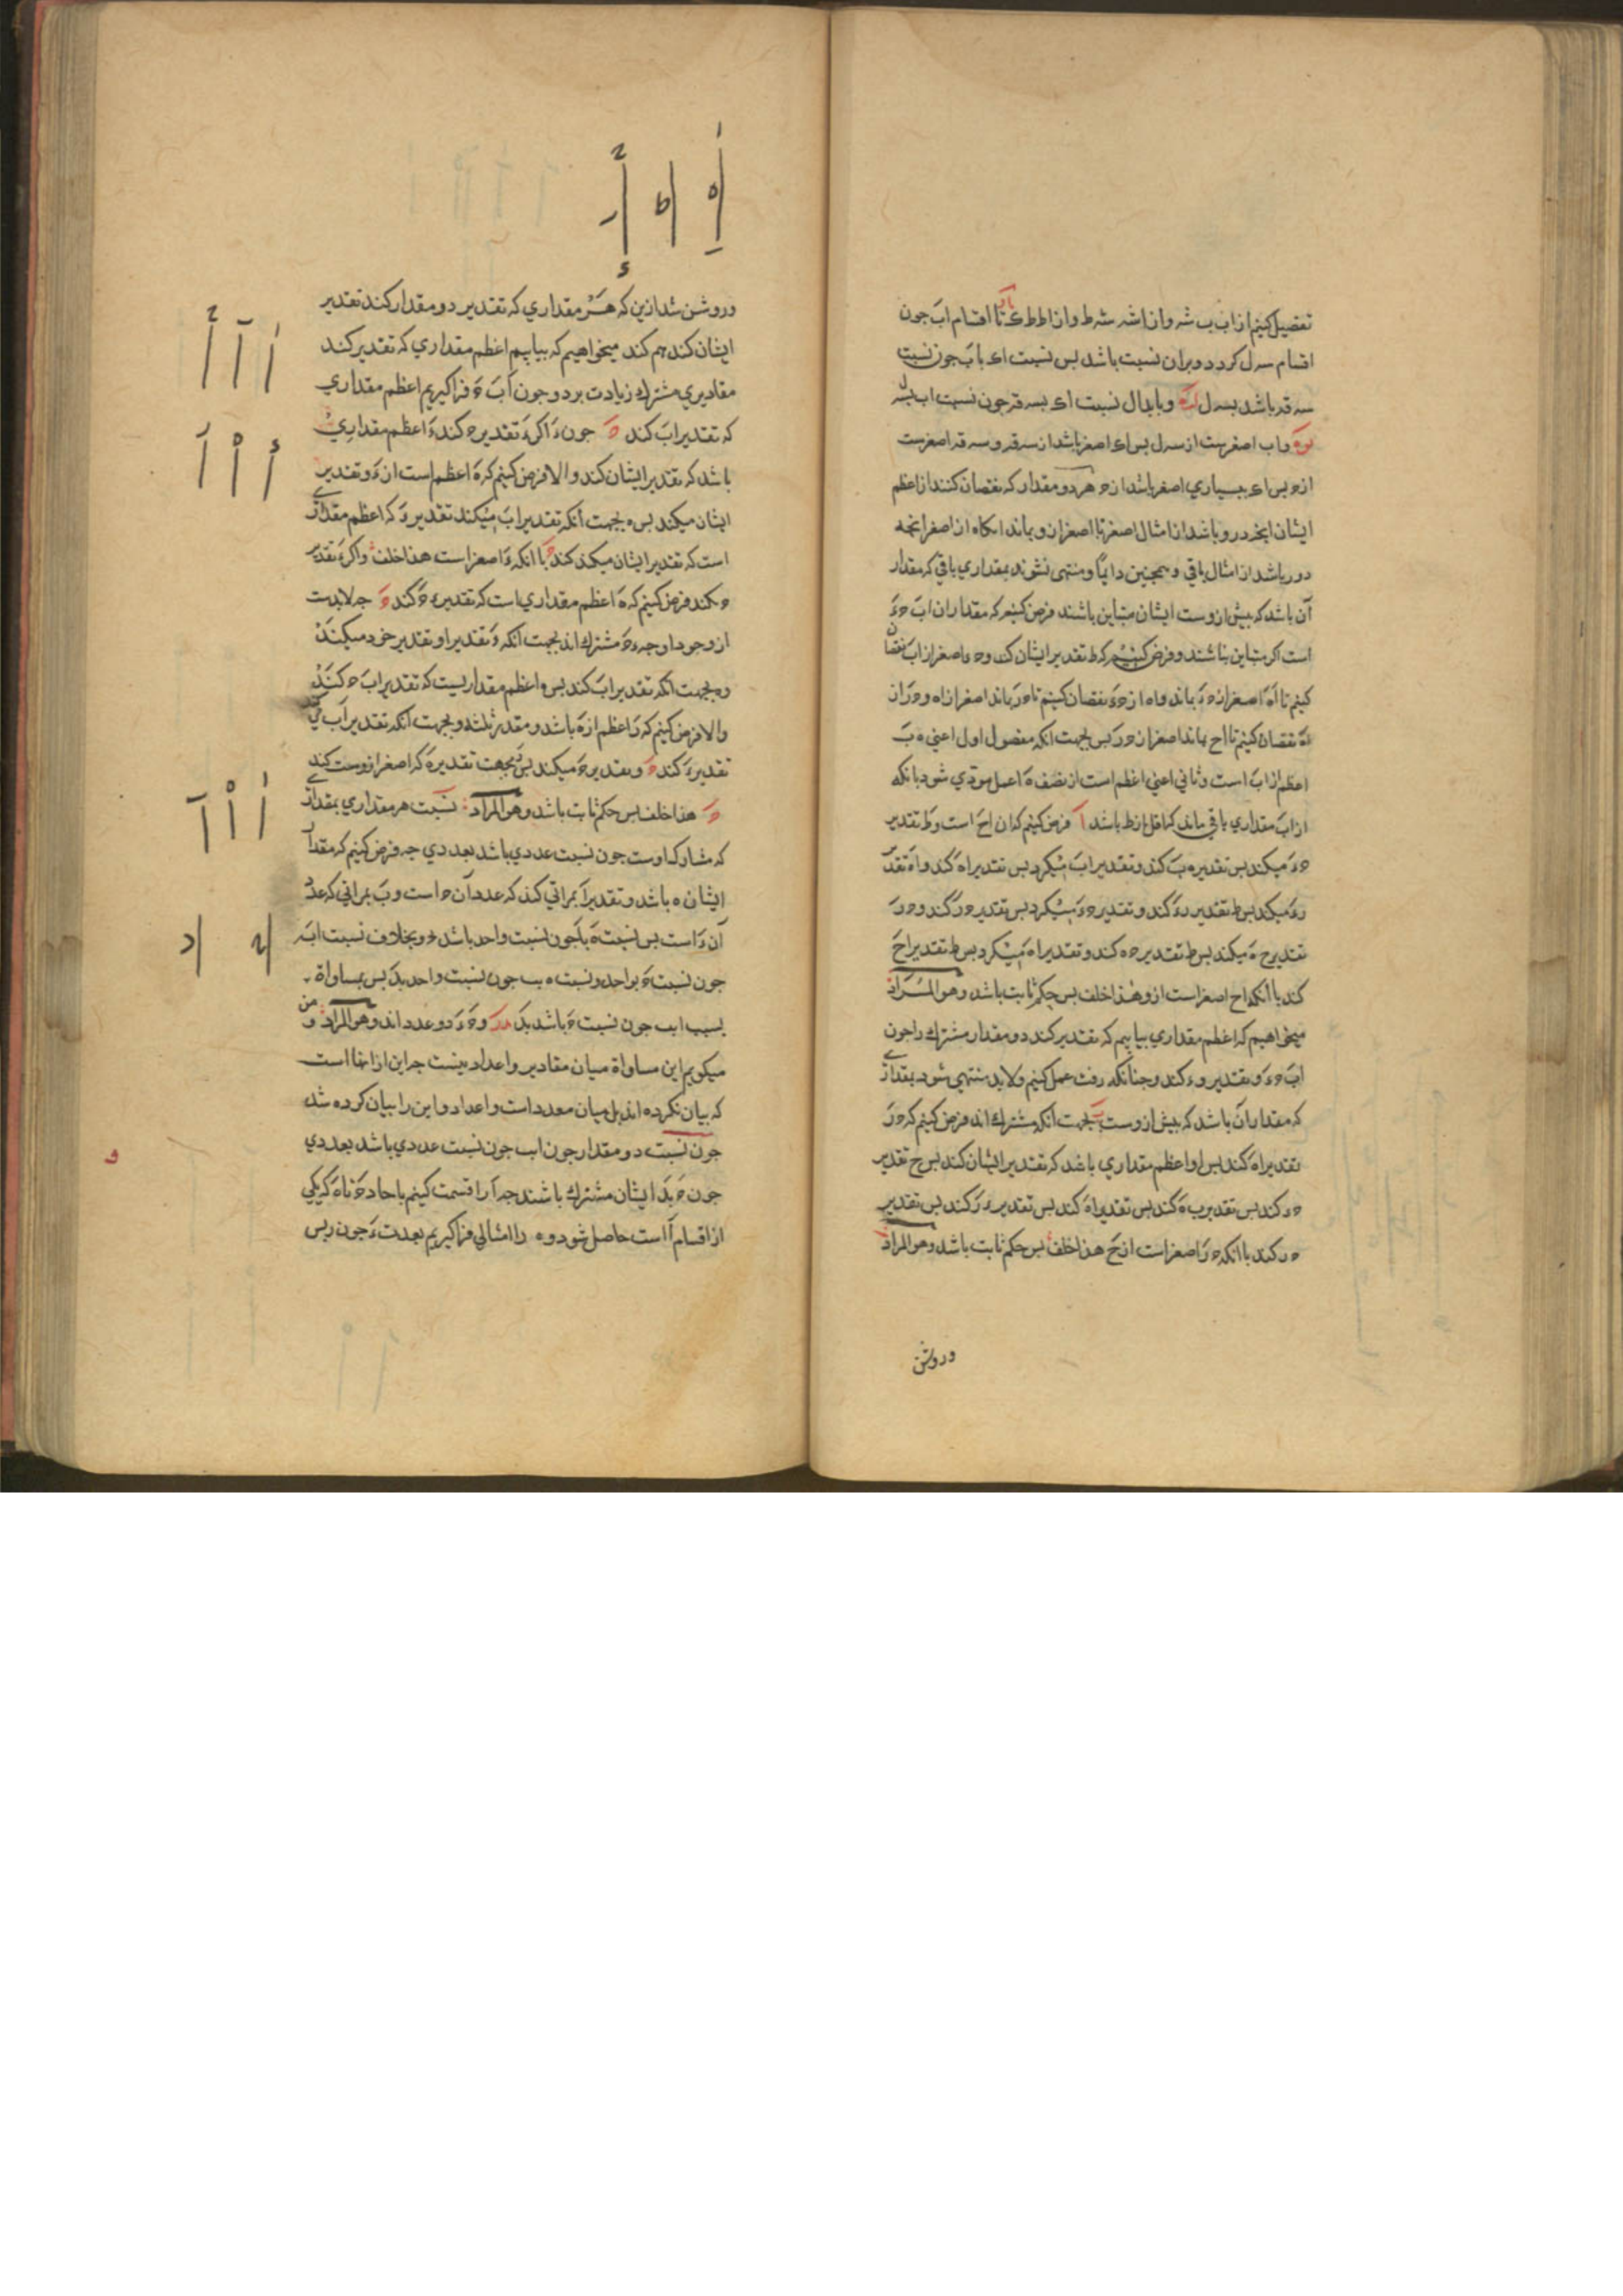 تفصیل کنیم از اب ب شه و از اشه شه ط و از اطط ی تا اقسام اب جون
اقسام سه ل کردد و بران نسبت باشد بس نسبت ای با ب جون نسبت
سه قه باشد بسه ل و بابدال نسبت ای بسه قه جون نسبت اب بسه ل
و اب اصغرست از سه ل بس ای اصغر باشد از سه قه و سه قه اصغرست
از ه بس ای ببسیاري اصغر باشد از ه هر دو مقدار که نقصان کنند از اعظم
ایشان انچه درو باشد از امثال اصغر تا اصغر ازو بماند انکاه از اصغر انچه
درو باشد از امثال باقي و همچنین دایمًا و منتهی نشوند بمقداري باقي که مقدار
آن باشد که بیش ازوست ایشان متباین باشند فرض کنیم که مقداران اب حء
است اکر متباین نباشند و فرض کنیم که ط تقدیر ایشان کند و حء اصغر از اب نقصان
کنیم تا اه اصغر از حء بماند و اه از حء نقصان کنیم تا حر بماند اصغر از اه و حر از
اه نقصان کنیم تا اح بماند اصغر از حر بس بجهت انکه مفصول اول اعني ه ب
اعظم از اب است و ثاني اعني اعظم است از نصف ه اعمل مودي شود بانکه
از اب مقداري باقي ماند که اقل از ط باشد فرض کنیم که ان اح است و ط تقدیر
حء میکند بس تقدیر ه ب کند و تقدیر اب میکرد بس تقدیر اه کند و اه تقدیر
رء میکند بس ط تقدیر رء کند و تقدیر حء میکرد بس تقدیر حر کند و حر
تقدیر ح ه میکند بس ط تقدیر ح ه کند و تقدیر اه میکرد بس ط تقدیر اح
کند با انکه اح اصغر است ازو هذا خلف بس حکم ثابت باشد و هو المراد
میخواهیم که اعظم مقداري بیابیم که تقدیر کند دو مقدار مشترك را جون
اب حء و تقدیر و ء کند و جنانکه رفت عمل کنیم و لابد منتهي شود بمقداري
که مقدار ان باشد که بیش ازوست بجهت انکه مشترك اند فرض کنیم که حر
تقدیر اه کند بس او اعظم مقداري باشد که تقدیر ایشان کند بس ح تقدیر
حء کند بس تقدیر ب ه کند بس تقدیر اه کند بس تقدیر ء ر کند بس تقدیر
حر کند با انکه حر اصغر است از ح هذا خلف بس حکم ثابت باشد و هو المراد
و روشن
و روشن شد ازین که هر مقداري که تقدیر دو مقدار کند تقدیر
ایشان کند هم کند میخواهیم که بیابیم اعظم مقداري که تقدیر کند
مقادیري مشترك زیادت بر دو جون اب ح فرا کیریم اعظم مقداري
که تقدیر اب کند جون ء اکر ء تقدیر ح کند ء اعظم مقداري
باشد که تقدیر ایشان کند و الا فرض کنیم که ه اعظم است از ء و تقدیر
ایشان میکند بس ه بجهت انکه تقدیر اب میکند تقدیر ء که اعظم مقداري
است که تقدیر ایشان میکند کند با انکه ء اصغر است هذا خلف و اکر ء تقدیر
ح نکند فرض کنیم که ه اعظم مقداري است که تقدیر ء ح کند جه لابدست
از وجود او جه ء ح مشترك اند بجهت انکه و تقدیر او تقدیر خود میکند
و بجهت انکه تقدیر اب کند بس ه اعظم مقداریست که تقدیر اب ح کند
و الا فرض کنیم که ر اعظم از ه باشد و مقدر ثلثه و بجهت انکه تقدیر اب میکند
تقدیر ء کند و تقدیر ح میکند بس بجهت تقدیر ه که اصغر ازوست کند
هذا خلف بس حکم ثابت باشد و هو المراد نسبت هر مقداري بمقداري
که مشارك اوست جون نسبت عددي باشد بعددي جه فرض کنیم که مقدار
ایشان ه باشد و تقدیر ا بمراتي کند که عدد آن ح است و ب بمراتي که عدد
آن ء است بس نسبت ه با جون نسبت واحد باشد ح و بخلاف نسبت ا به
جون نسبت ح بواحد و نسبت ه ب جون نسبت واحد بد بس بمساواة
نسبت اب جون نسبت ح باشد بد و ح ء دو عدد اند و هو المراد و من
میکویم این مساواة میان مقادیر و اعداد نیست جه این ازانها است
که بیان نکرده اند بل میان معدد است و اعداد و این را بیان کرده شد
جون نسبت دو مقدار جون اب جون نسبت عددي باشد بعددي
جون ح بد ایشان مشترك باشند جه ا را قسمت کنیم باحاد ح تا ه که یکي
از اقسام ا است حاصل شود و ه را امثالي فرا کیریم بعدت ء جون ر بس